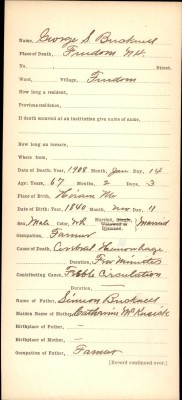 Name, George S Bucknell
Place of Death, Freedom N.H.
No. Street.
Ward, Village, Freedom
How long a resident,
Previous residence,
If death occurred at an institution give name of same,
How long an inmate,
Where from,
Date of Death: Year, 1908 Month, Jan Day, 14
Age: Years, 67 Months, 2 Days, 3
Place of Birth, Hiram Me
Date of Birth: Year, 1840 Month, Nov Day, 11
Sex, Male Color, Wh Married, Single, Widowed or Divorced Married
Occupation, Farmer
Cause of Death, Cerebral Hemorrhage
Duration, Few Minutes
Contributing Cause, Feeble Circulation
Duration, —
Name of Father, Simeon Bucknell
Maiden Name of Mother, Catherine McKusick
Birthplace of Father, —
Birthplace of Mother, —
Occupation of Father, Farmer
[Record continued over.]